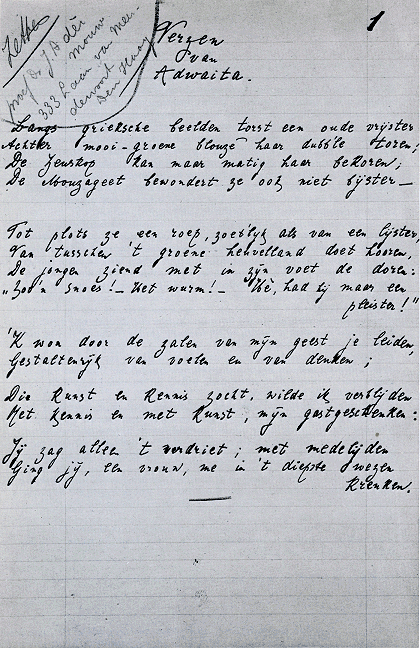 1
Zetten
prof Dr J. A dèr
mouw
333 Laan va Meer
dervoort
Den Haag
Verzen
van
Adwaita.
Langs grieksche beelden torst een oude vrijster
Achter mooi-groene blouze haar dubble toren;
De Zeuskop kan maar matig haar bekoren;
De Mouzageet bewondert ze ook niet bijster —
Tot plots ze een roep, zoetlijk als van een lijster,
Van tusschen 't groene heuvelland doet hooren,
De jongen ziend met in zijn voet de doren:
„Zoo'n snoes! – Het wurm! – Hè, had hij maar een
pleister!"
'K won door de zalen van mijn geest je leiden,
Gestaltenrijk van voelen en van denken;
Die Kunst en Kennis zocht, wilde ik verblijden
Met Kennis en met Kunst, mijn gastgeschenken:
Jij zag alleen 't verdriet; met medelijden
Ging jij, een vrouw, me in 't diepste wezen
Krenken.